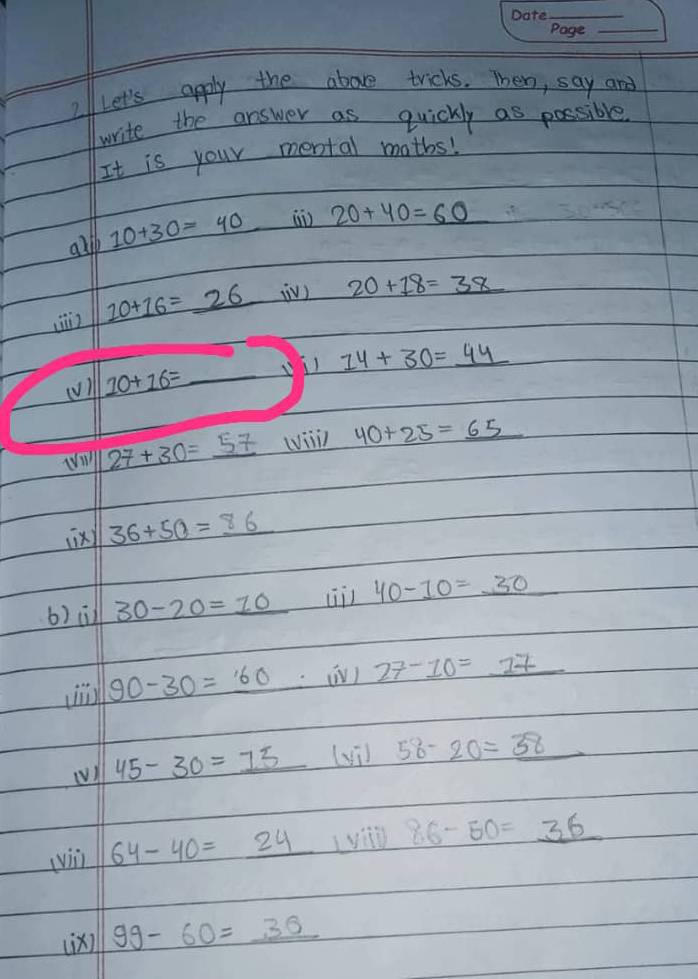 Date
Page
2. Let's apply the above tricks. Then, say and
write the answer as quickly as possible.
It is your mental maths!
a) i) 10+30= 40 ii) 20+40=60
iii) 10+16= 26 iv) 20+18= 38
(v) 10+16= vi) 14+30= 44
(vii) 27+30= 57 (viii) 40+25= 65
(ix) 36+50= 86
b) (i) 30-20=10 (ii) 40-10= 30
(iii) 90-30= 60 . (iv) 27-10= 17
(v) 45-30= 15 (vi) 58-20= 38
(vii) 64-40= 24 (viii) 86-50= 36
(ix) 99-60=